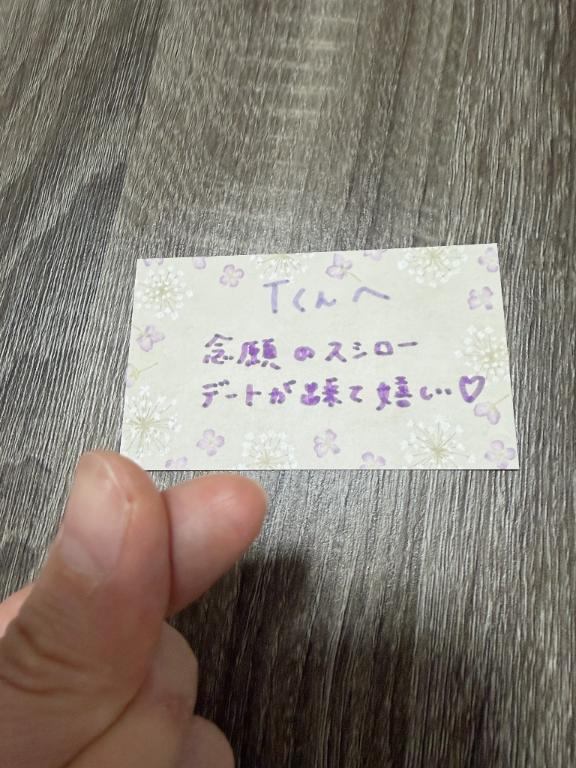 Tくんへ
念願のスシロー
デートが出来て嬉しい♡